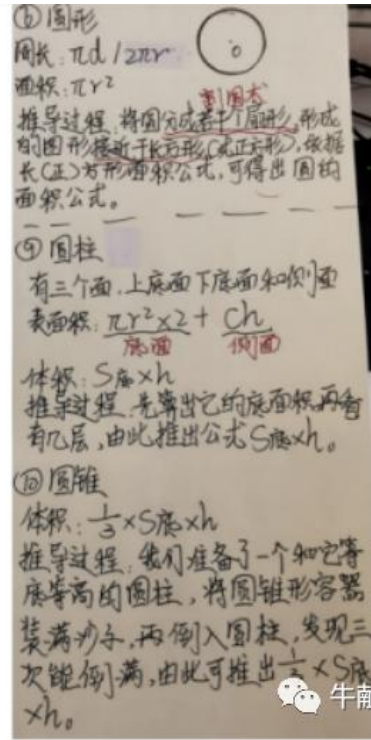 ⑧ 圆形
周长：πd / 2πr
面积：πr²
割圆术
推导过程：将圆分成若干个扇形，形成
的图形接近于长方形(或正方形)，依据
长(正)方形面积公式，可得出圆的
面积公式。
⑨ 圆柱
有三个面，上底面下底面和侧面
表面积：πr²×2 + Ch
底面 侧面
体积：S底×h
推导过程：先算出它的底面积，再看
有几层，由此推出公式S底×h。
⑩ 圆锥
体积：1/3×S底×h
推导过程：我们准备了一个和它等
底等高的圆柱，将圆锥形容器
装满沙子，再倒入圆柱，发现三
次能倒满，由此可推出1/3×S底
×h。
牛献